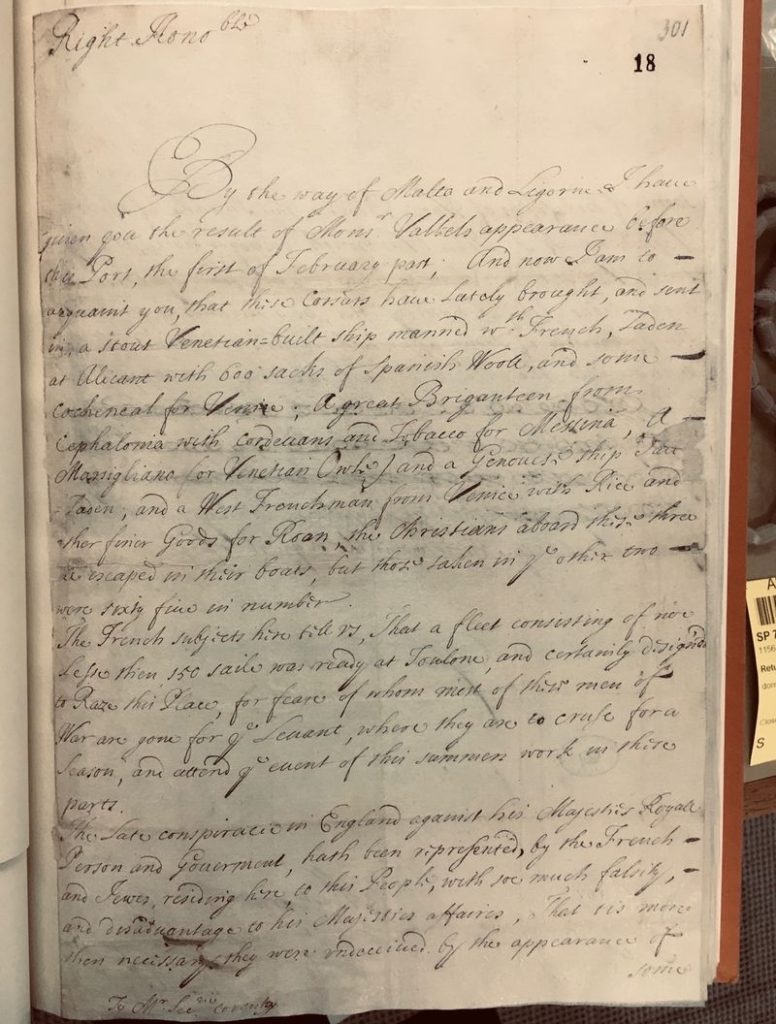 Right Hono ble
301
18
By the way of Malta and Legorne I have
given you the result of Monsr Valbels appearance before
this Port, the first of February past; And now I am to
acquaint you, that these Corsars have Lately brought, and sent
in, a stout Venetian=built ship manned wth French, Laden
at Alicant with 600 sacks of Spanish Wooll, and some
Cocheneal for Venice; A great Briganteen from
Cephalonia with cordevans and Tobacco for Messina, A
Marsigliana (or Venetian Owle) and a Genouese ship
Laden; and a West Frenchman from Venice with Rice and
other finer Goods for Roan, the Christians aboard these three
escaped in their boats, but those taken in ye other two
were sixty five in number.
The French subjects here tell us, That a fleet consisting of noe
Lesse then 150 saile was ready at Toulone, and certainly design'd
to Raze this Place, for feare of whom most of their men of
War are gone for ye Levant, where they are to cruse for a
season, and attend ye event of this summers work in these
parts.
The Late conspiracie in England against his Majesties Royall
Person and Goverment, hath been represented, by the French
and Jewes, residing here, to this People, with soe much falsity,
and disadvantage to his Majesties affaires, That tis more
then necessary they were undeceived by the appearance of
some
To Mr Secrie Coventry
SP 7
1156
Retu
Clos
S